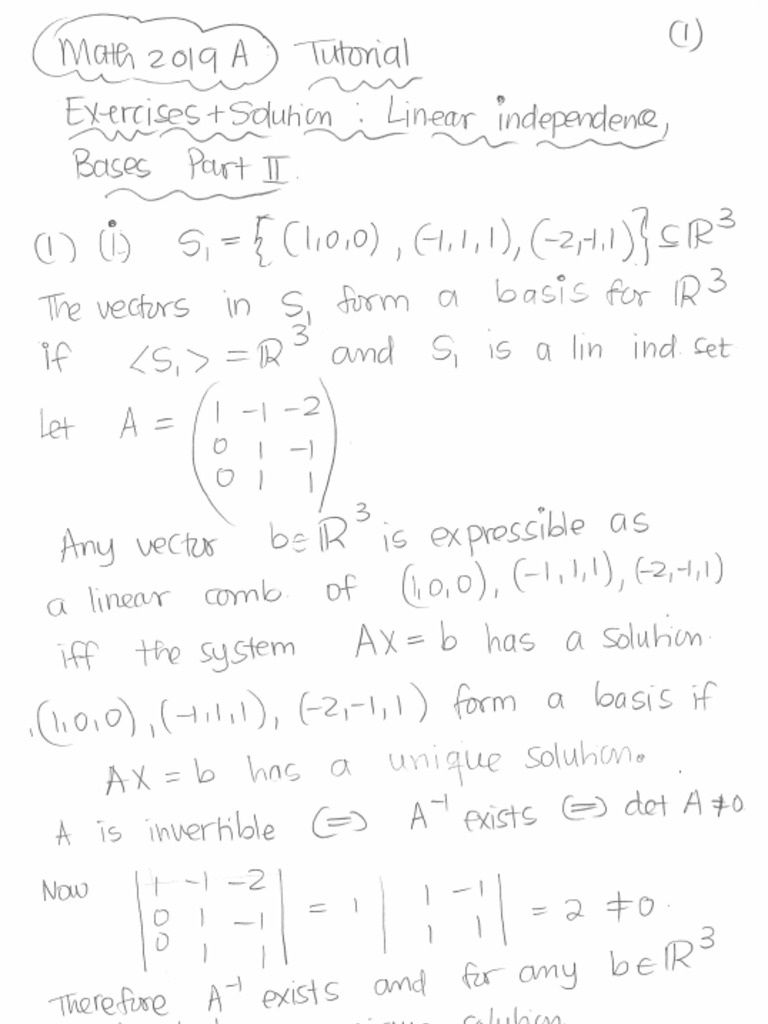 (1)
Math 2019 A Tutorial
Exercises + Solution : Linear independence,
Bases Part II.
(1) (i) S₁ = { (1,0,0) , (-1,1,1), (-2,-1,1)} ⊆ ℝ³
The vectors in S₁ form a basis for ℝ³
if <S₁> = ℝ³ and S₁ is a lin ind. set
Let A = ( 1 -1 -2
0 1 -1
0 1 1 )
Any vector b∈ℝ³ is expressible as
a linear comb. of (1,0,0), (-1,1,1), (-2,-1,1)
iff the system AX = b has a solution.
(1,0,0), (-1,1,1), (-2,-1,1) form a basis if
AX = b has a unique solution.
A is invertible ⟺ A⁻¹ exists ⟺ det A ≠ 0
Now | 1 -1 -2 | = 1 | 1 -1 | = 2 ≠ 0.
| 0 1 -1 | | 1 1 |
| 0 1 1 |
Therefore A⁻¹ exists and for any b∈ℝ³
unique solution